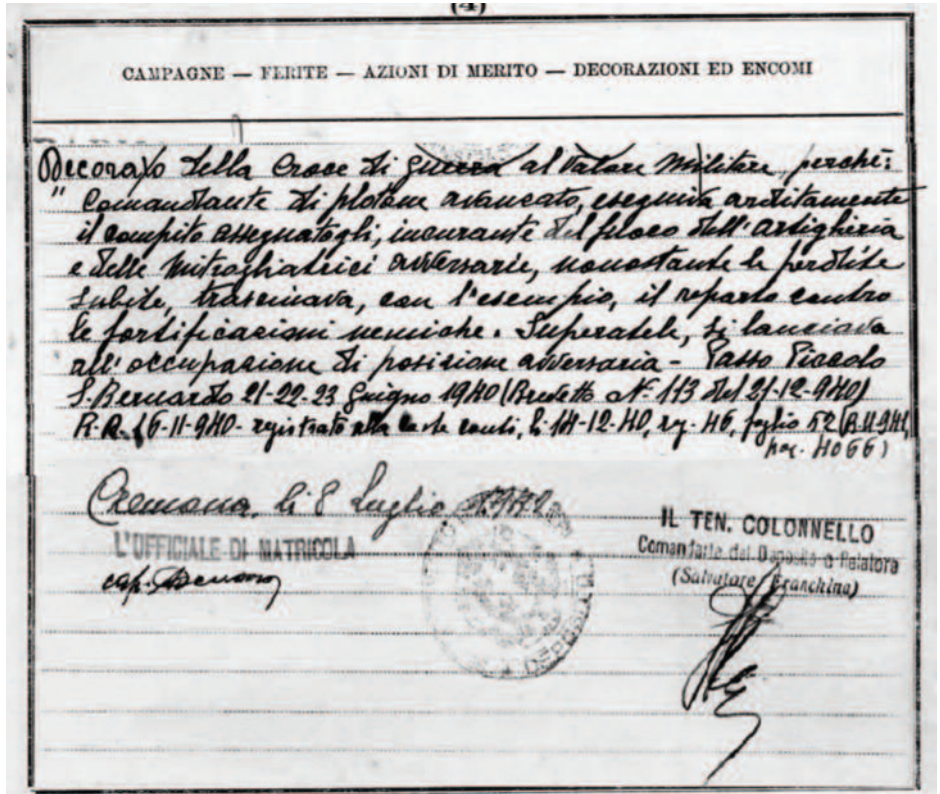 (4)
CAMPAGNE — FERITE — AZIONI DI MERITO — DECORAZIONI ED ENCOMI
Decorato della Croce di guerra al Valore Militare, perché:
" Comandante di plotone avanzato, eseguiva arditamente
il compito assegnatogli, incurante del fuoco dell'artiglieria
e delle mitragliatrici avversarie, nonostante le perdite
subite, trascinava, con l'esempio, il reparto contro
le fortificazioni nemiche. Superatele, si lanciava
all'occupazione di posizione avversaria - Passo Piccolo
S. Bernardo 21-22-23 Giugno 1940 (Brevetto N. 113 del 21-12-940)
R.R. 16-11-940 - registrato alla Corte conti, li 14-12-40, reg. 46, foglio 52
4066)
Cremona, li 8 Luglio
L'UFFICIALE DI MATRICOLA
cap.
IL TEN. COLONNELLO
Comandante del Deposito e Relatore
(Salvatore Branchina)